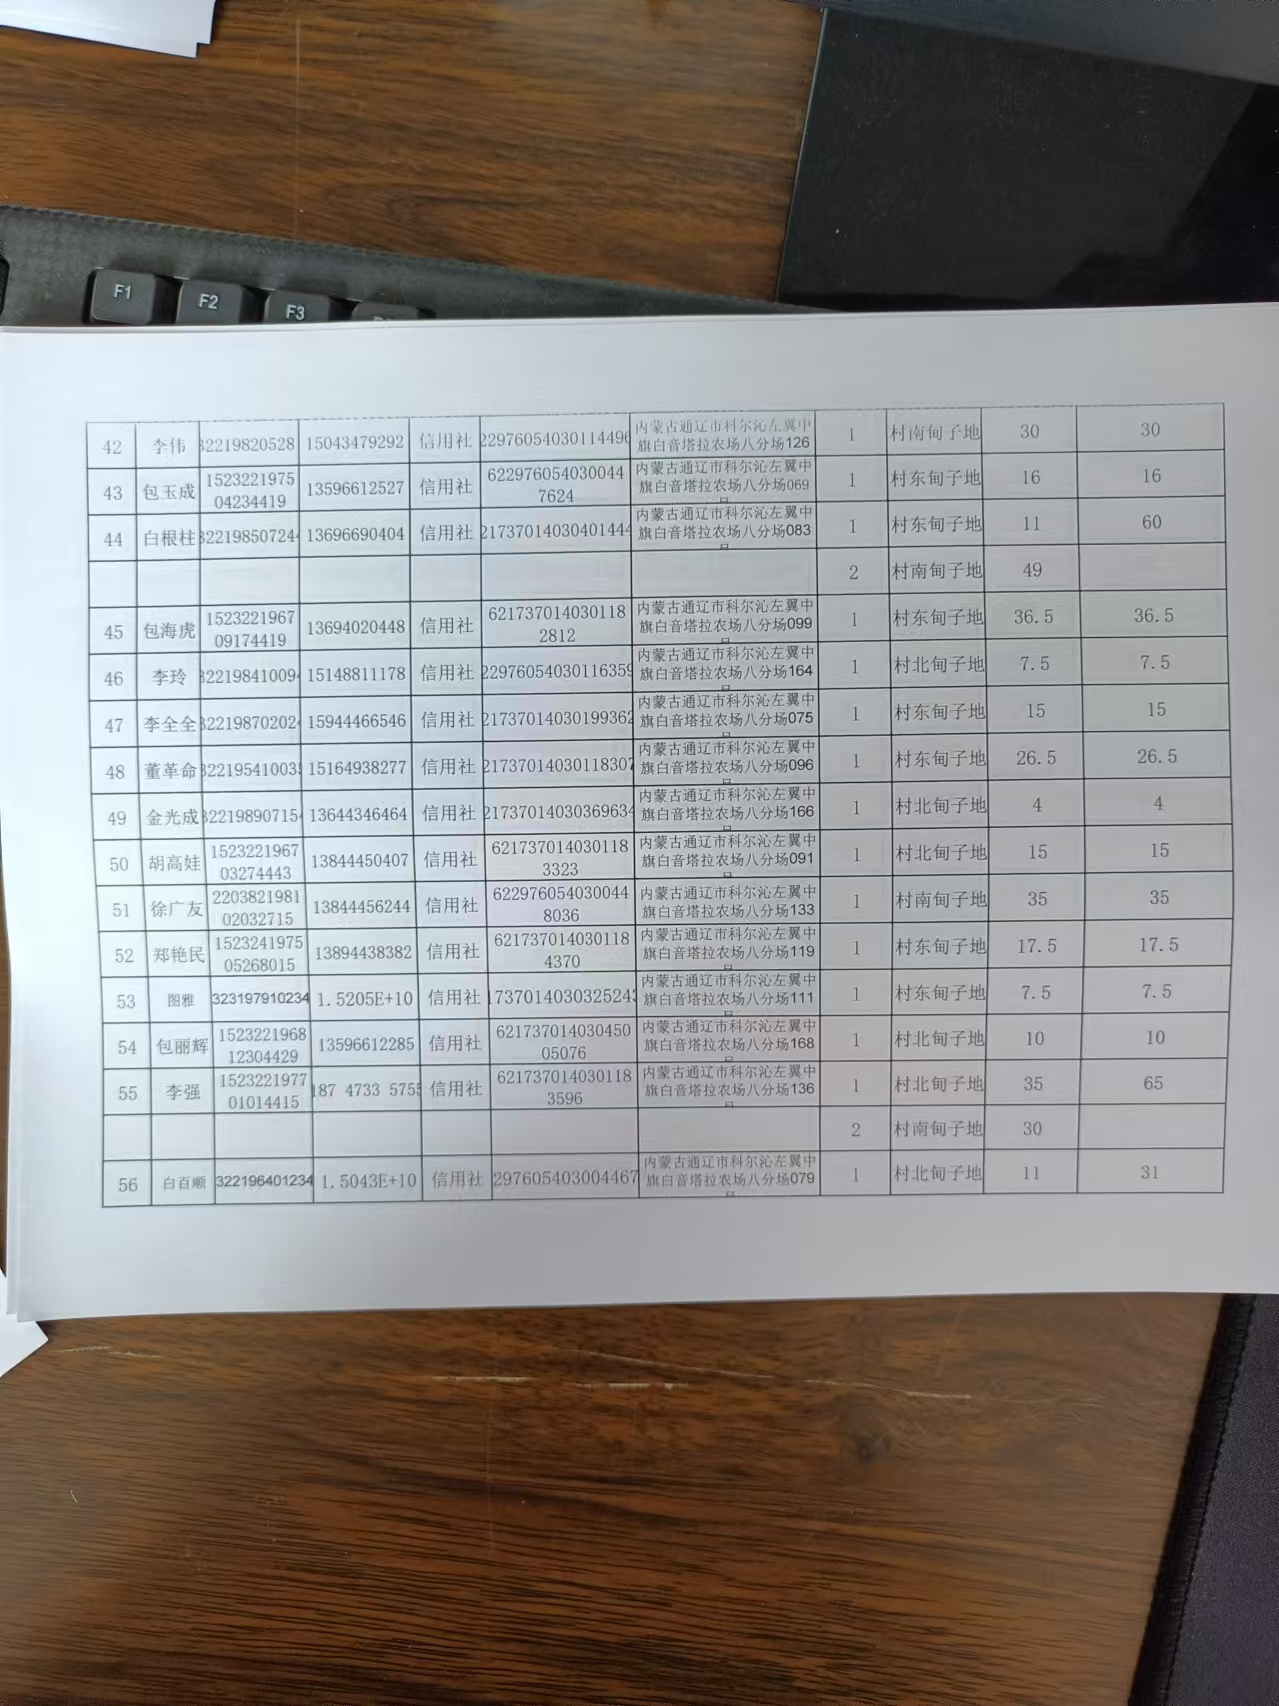 F1 F2 F3
42 李伟 32219820528 15043479292 信用社 22976054030114496 内蒙古通辽市科尔沁左翼中旗白音塔拉农场八分场126 1 村南甸子地 30 30
43 包玉成 152322197504234419 13596612527 信用社 6229760540300447624 内蒙古通辽市科尔沁左翼中旗白音塔拉农场八分场069 1 村东甸子地 16 16
44 白根柱 32219850724 13696690404 信用社 21737014030401444 内蒙古通辽市科尔沁左翼中旗白音塔拉农场八分场083 1 村东甸子地 11 60
2 村南甸子地 49
45 包海虎 152322196709174419 13694020448 信用社 6217370140301182812 内蒙古通辽市科尔沁左翼中旗白音塔拉农场八分场099 1 村东甸子地 36.5 36.5
46 李玲 32219841009 15148811178 信用社 22976054030116359 内蒙古通辽市科尔沁左翼中旗白音塔拉农场八分场164 1 村北甸子地 7.5 7.5
47 李全全 32219870202 15944466546 信用社 21737014030199362 内蒙古通辽市科尔沁左翼中旗白音塔拉农场八分场075 1 村东甸子地 15 15
48 董革命 32219541003 15164938277 信用社 21737014030118307 内蒙古通辽市科尔沁左翼中旗白音塔拉农场八分场096 1 村东甸子地 26.5 26.5
49 金光成 32219890715 13644346464 信用社 21737014030369634 内蒙古通辽市科尔沁左翼中旗白音塔拉农场八分场166 1 村北甸子地 4 4
50 胡高娃 152322196703274443 13844450407 信用社 6217370140301183323 内蒙古通辽市科尔沁左翼中旗白音塔拉农场八分场091 1 村北甸子地 15 15
51 徐广友 220382198102032715 13844456244 信用社 6229760540300448036 内蒙古通辽市科尔沁左翼中旗白音塔拉农场八分场133 1 村南甸子地 35 35
52 郑艳民 152324197505268015 13894438382 信用社 6217370140301184370 内蒙古通辽市科尔沁左翼中旗白音塔拉农场八分场119 1 村东甸子地 17.5 17.5
53 图雅 323197910234 1.5205E+10 信用社 1737014030325243 内蒙古通辽市科尔沁左翼中旗白音塔拉农场八分场111 1 村东甸子地 7.5 7.5
54 包丽辉 152322196812304429 13596612285 信用社 62173701403045005076 内蒙古通辽市科尔沁左翼中旗白音塔拉农场八分场168 1 村北甸子地 10 10
55 李强 152322197701014415 187 4733 5755 信用社 6217370140301183596 内蒙古通辽市科尔沁左翼中旗白音塔拉农场八分场136 1 村北甸子地 35 65
2 村南甸子地 30
56 白百顺 322196401234 1.5043E+10 信用社 297605403004467 内蒙古通辽市科尔沁左翼中旗白音塔拉农场八分场079 1 村北甸子地 11 31